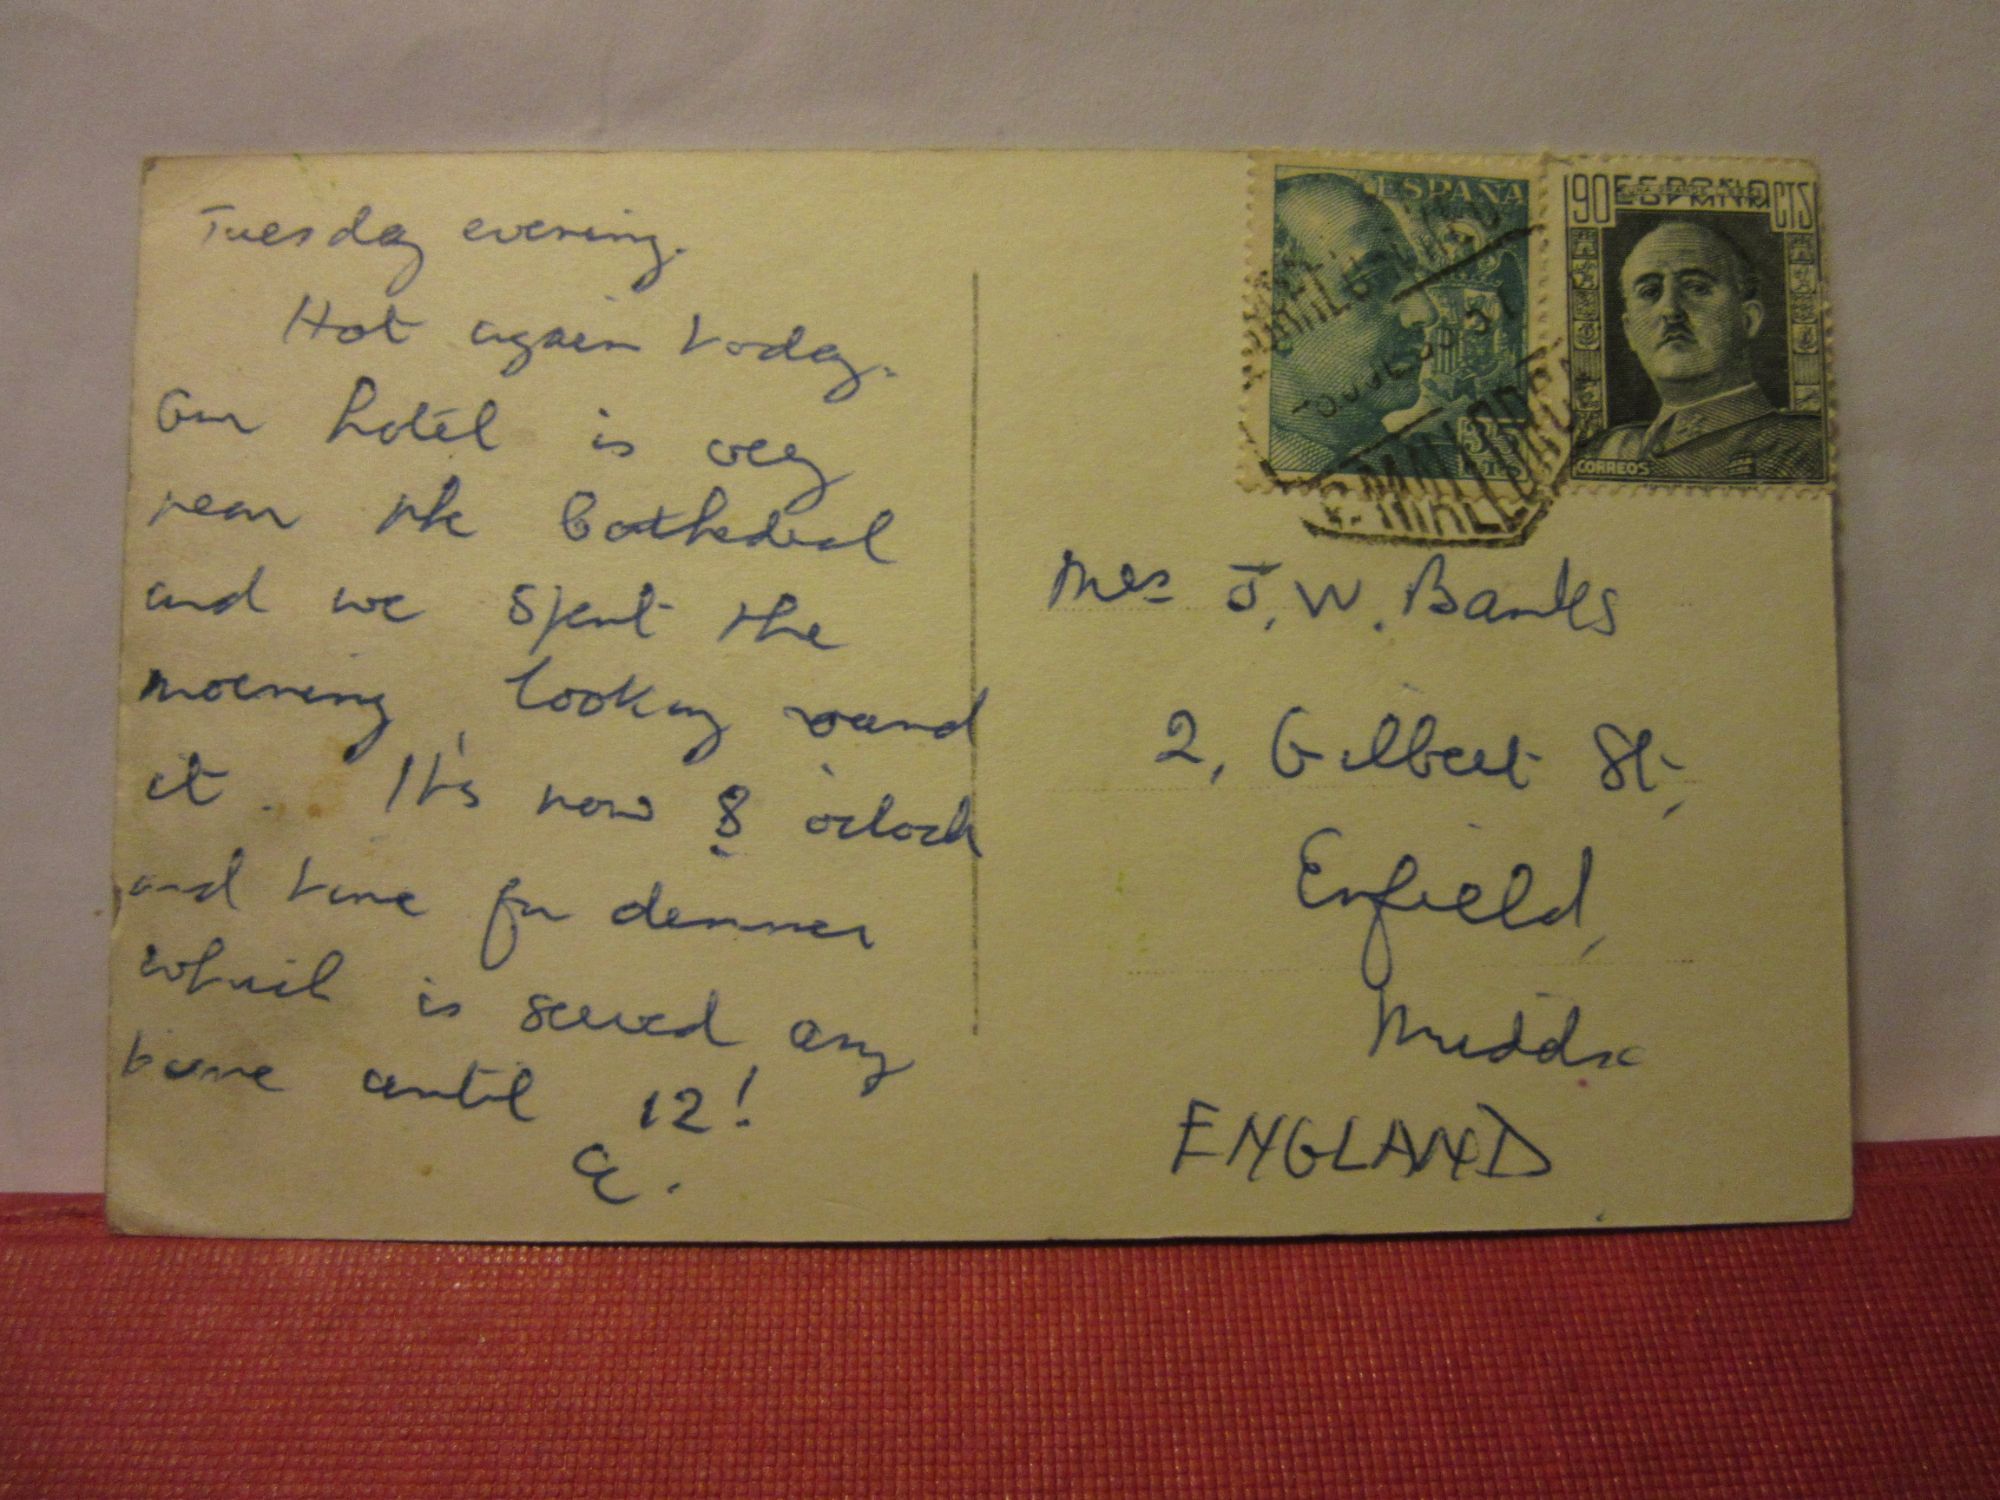 Tuesday evening.
Hot again today.
Our hotel is very
near the Cathedral
and we spent the
morning, looking round
it. It's now 8 o'clock
and time for dinner
which is served any
time until 12!
E.
ESPAÑA
PTAS
90 ESPAÑA CTS
CORREOS
MALLORCA
Mrs J. W. Banks
2, Gilbert St,
Enfield,
Middx
ENGLAND